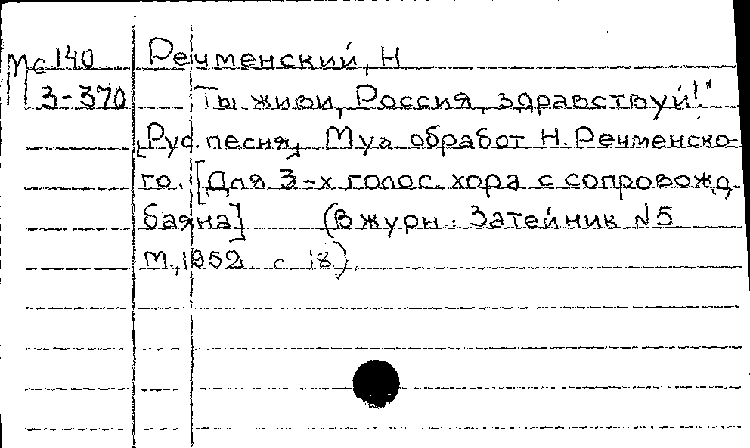 Мс 140 Речменский, Н
3-370 Ты живи, Россия, здравствуй!"
[Рус. песня, Муз обработ Н. Речменско-
го. [Для 3-х голос. хора с сопровожд.
баяна] (В журн. Затейник №5
М., 1952 с 18)